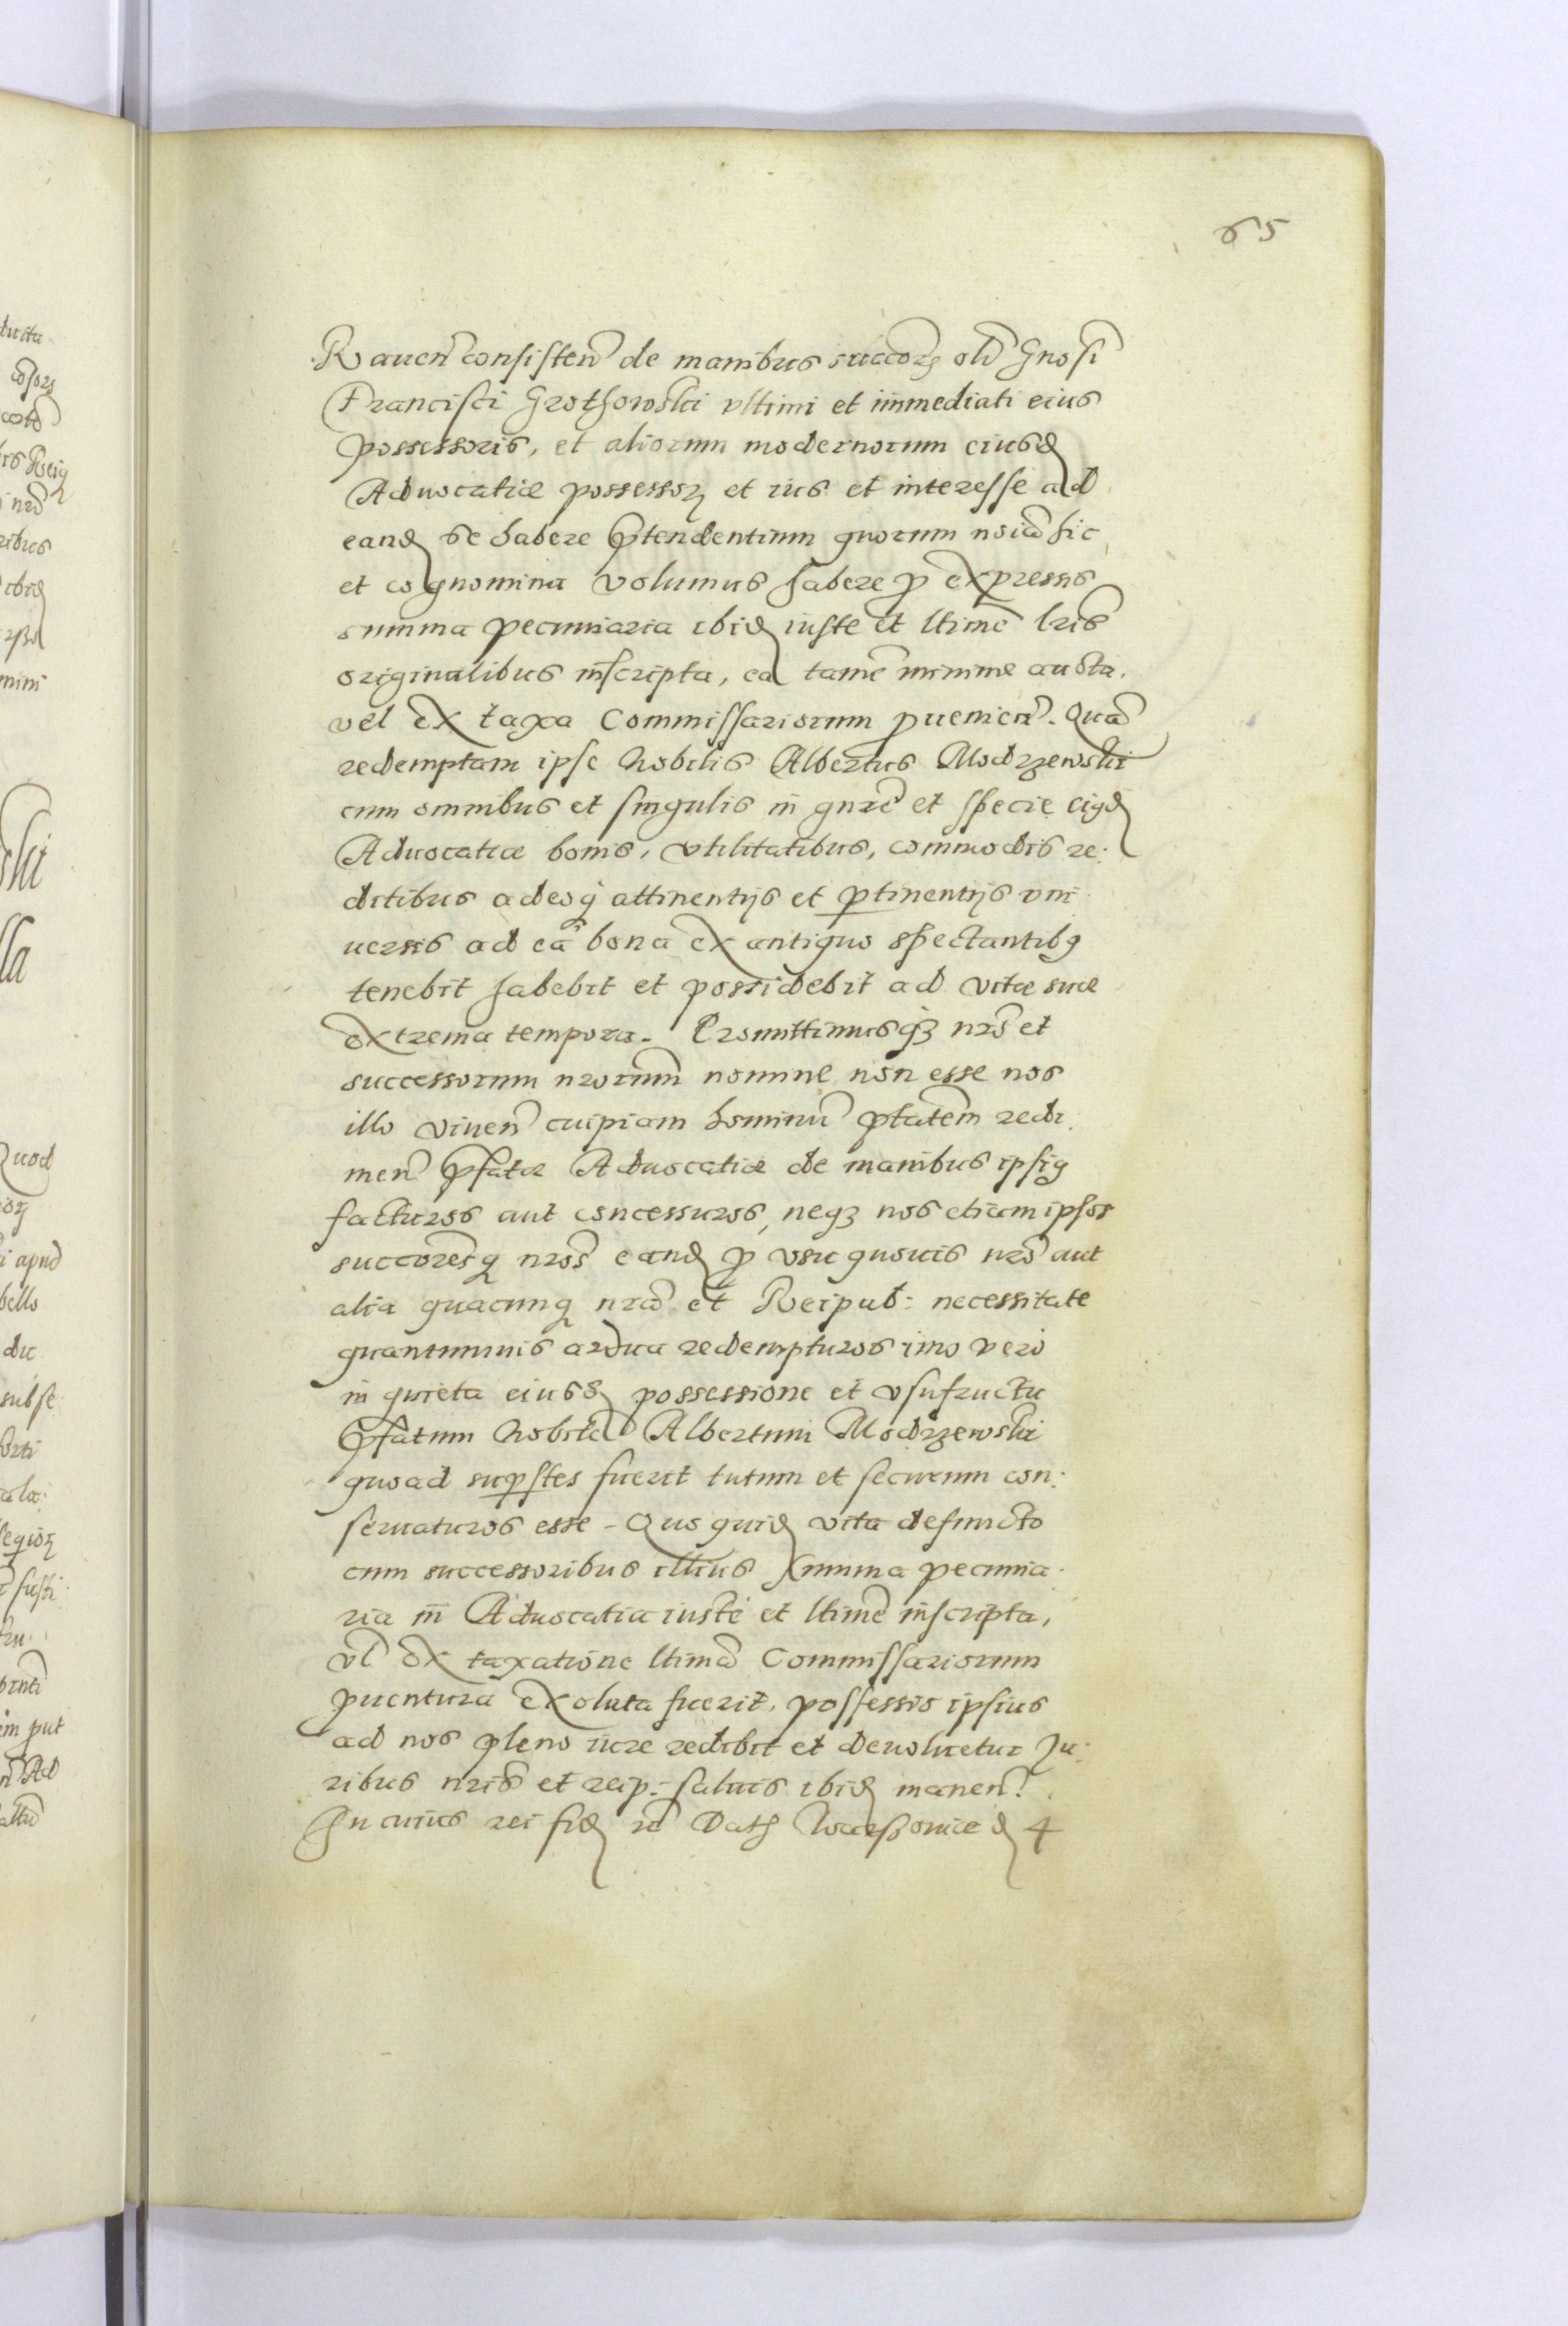 65
Rauen consisten de manibus succorꝝ oli Gnosi
Francisci Grothowski vltimi et immediati eius
possessoris, et aliorum modernorum eiusd
Aduocatiæ possessorꝝ et ius et interesse ad
eand se habere ptendentium quorum noia hic
et cognomina volumus habere p expressis
summa pecuniaria ibid iuste et ltime lris
originalibus inscripta, ea tame minime aucta.
vel ex taxa Commissariorum puenien. Qua
redemptam ipse Nobilis Albertus Modrzewski
cum omnibus et singulis in gnre et specie eiqd
Aduocatiæ bonis, vtilitatibus, commodis re:
ditibus adeoq attinentijs et ptinentijs vni
uersis ad ea bona ex antiquo spectantibq
tenebit habebit et possidebit ad vitæ suæ
extrema tempora. Promittimusqꝫ nro et
successorum nrorum nomine non esse nos
illo viuen cuipiam hominu ptatem redi
men pfatæ Aduocatiæ de manibus ipsiq
facturos aut concessuros, neqꝫ nos etiam ipsos
succoresq nros eand p vsu quouis nro aut
alia quacunq nra et Reipub: necessitate
quantumuis ardua redempturos imo vero
in quieta eiusd possessione et vsufructu
pfatum Nobile Albertum Modrzewski
quoad supstes fuerit tutum et securum con:
seruaturos esse. Quo quid vita defuncto
cum successoribus illius summa pecunia
ria in Aduocatia iuste et ltime inscripta,
vl ex taxatione ltima Commissariorum
puentura exoluta fuerit, possessio ipsius
ad nos pleno iure redibit et deuoluetur Ju:
ribus nris et reip: saluis ibid manen.
In cuius rei fid re Dat Warssouiæ d 4